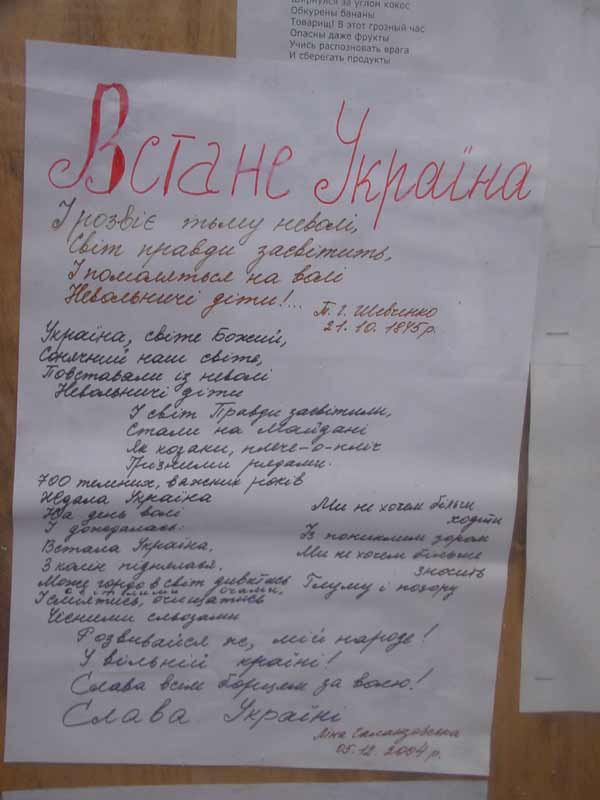 Обкурены бананы
Товарищ! В этот грозный час
Опасны даже фрукты
Учись распозновать врага
И сберегать продукты
Встане Україна
І розвіє тьму неволі,
Світ правди засвітить,
І помоляться на волі
Невольничі діти!...
Т. Г. Шевченко
21. 10. 1845 р.
Україна, світе Божий,
Сонячний наш світе,
Повставали із неволі
Невольничі діти
І світ Правди засвітили,
Стали на Майдані
Як козаки, плече-о-пліч
Грізними рядами.
700 темних, важких років
Ждала Україна
На день волі
І дождалась:
Встала Україна,
З колін піднялася,
Може гордо в світ дивитись
світлими очами,
І сміятись, очищатись
Чесними сльозами
Ми не хочем більш
ходити
Із пониклим зором
Ми не хочем більше
зносить
Глуму і позору
Розвивайся ж, мій народе!
У вольній країні!
Слава всім борцям за волю!
Слава Україні
05. 12. 2004 р.